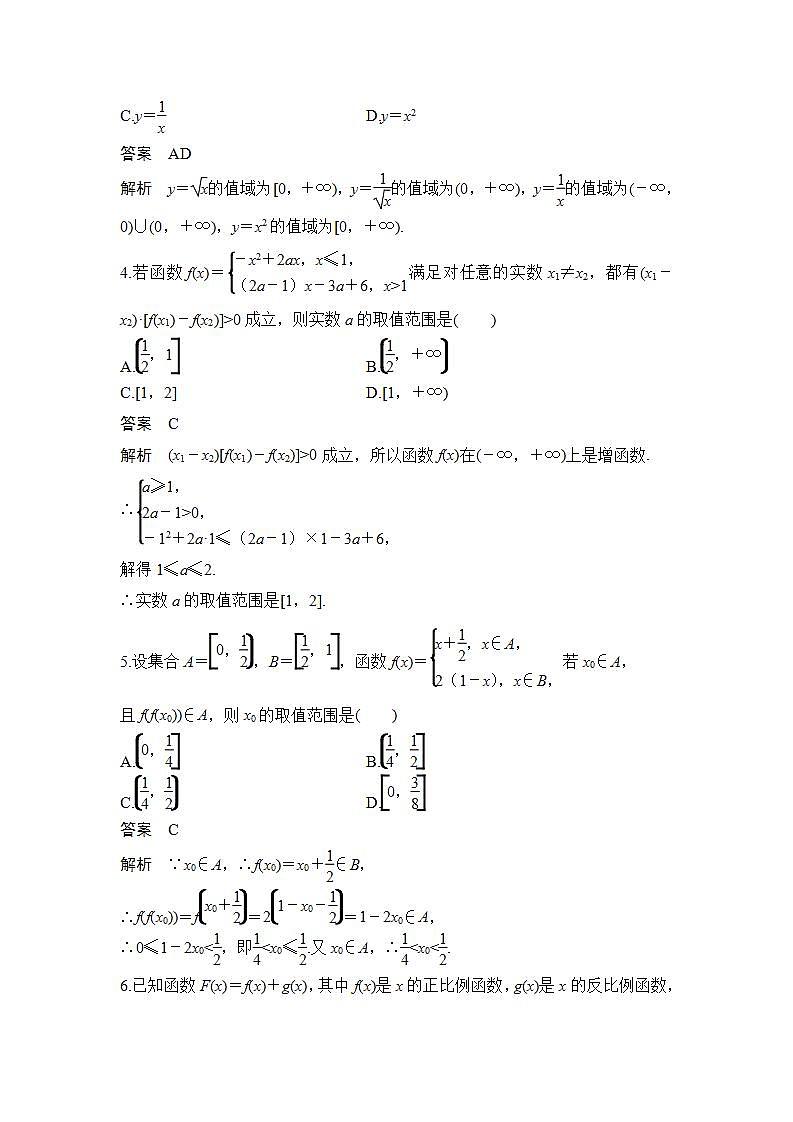 C.y=1/x D.y=x²
答案 AD
解析 y=√x的值域为[0，+∞)，y=1/√x的值域为(0，+∞)，y=1/x的值域为(－∞，
0)∪(0，+∞)，y=x²的值域为[0，+∞).
4.若函数 f(x)={－x²+2ax，x≤1，（2a－1）x－3a+6，x>1 满足对任意的实数 x₁≠x₂，都有(x₁－
x₂)·[f(x₁)－f(x₂)]>0 成立，则实数 a 的取值范围是( )
A.(1/2，1] B.(1/2，+∞)
C.[1，2] D.[1，+∞)
答案 C
解析 (x₁－x₂)[f(x₁)－f(x₂)]>0 成立，所以函数 f(x)在(－∞，+∞)上是增函数.
∴{a≥1，
2a－1>0，
－1²+2a·1≤（2a－1）×1－3a+6，
解得 1≤a≤2.
∴实数 a 的取值范围是[1，2].
5.设集合 A=[0，1/2)，B=[1/2，1]，函数 f(x)={x+1/2，x∈A，2（1－x），x∈B， 若 x₀∈A，
且 f(f(x₀))∈A，则 x₀ 的取值范围是( )
A.(0，1/4] B.(1/4，1/2]
C.(1/4，1/2) D.[0，3/8]
答案 C
解析 ∵x₀∈A，∴f(x₀)=x₀+1/2∈B，
∴f(f(x₀))=f(x₀+1/2)=2(1－x₀－1/2)=1－2x₀∈A，
∴0≤1－2x₀<1/2，即1/4<x₀≤1/2.又 x₀∈A，∴1/4<x₀<1/2.
6.已知函数 F(x)=f(x)+g(x)，其中 f(x)是 x 的正比例函数，g(x)是 x 的反比例函数，